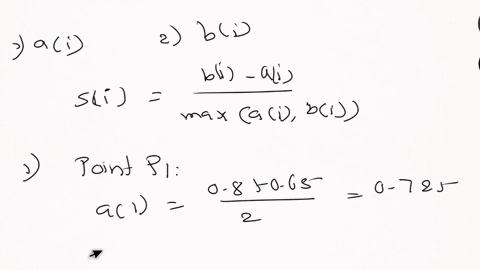 1) a(i) 2) b(i)
s(i) = b(i) - a(i) / max (a(i), b(i))
1) Point P1:
a(1) = 0.8 + 0.65 / 2 = 0.725